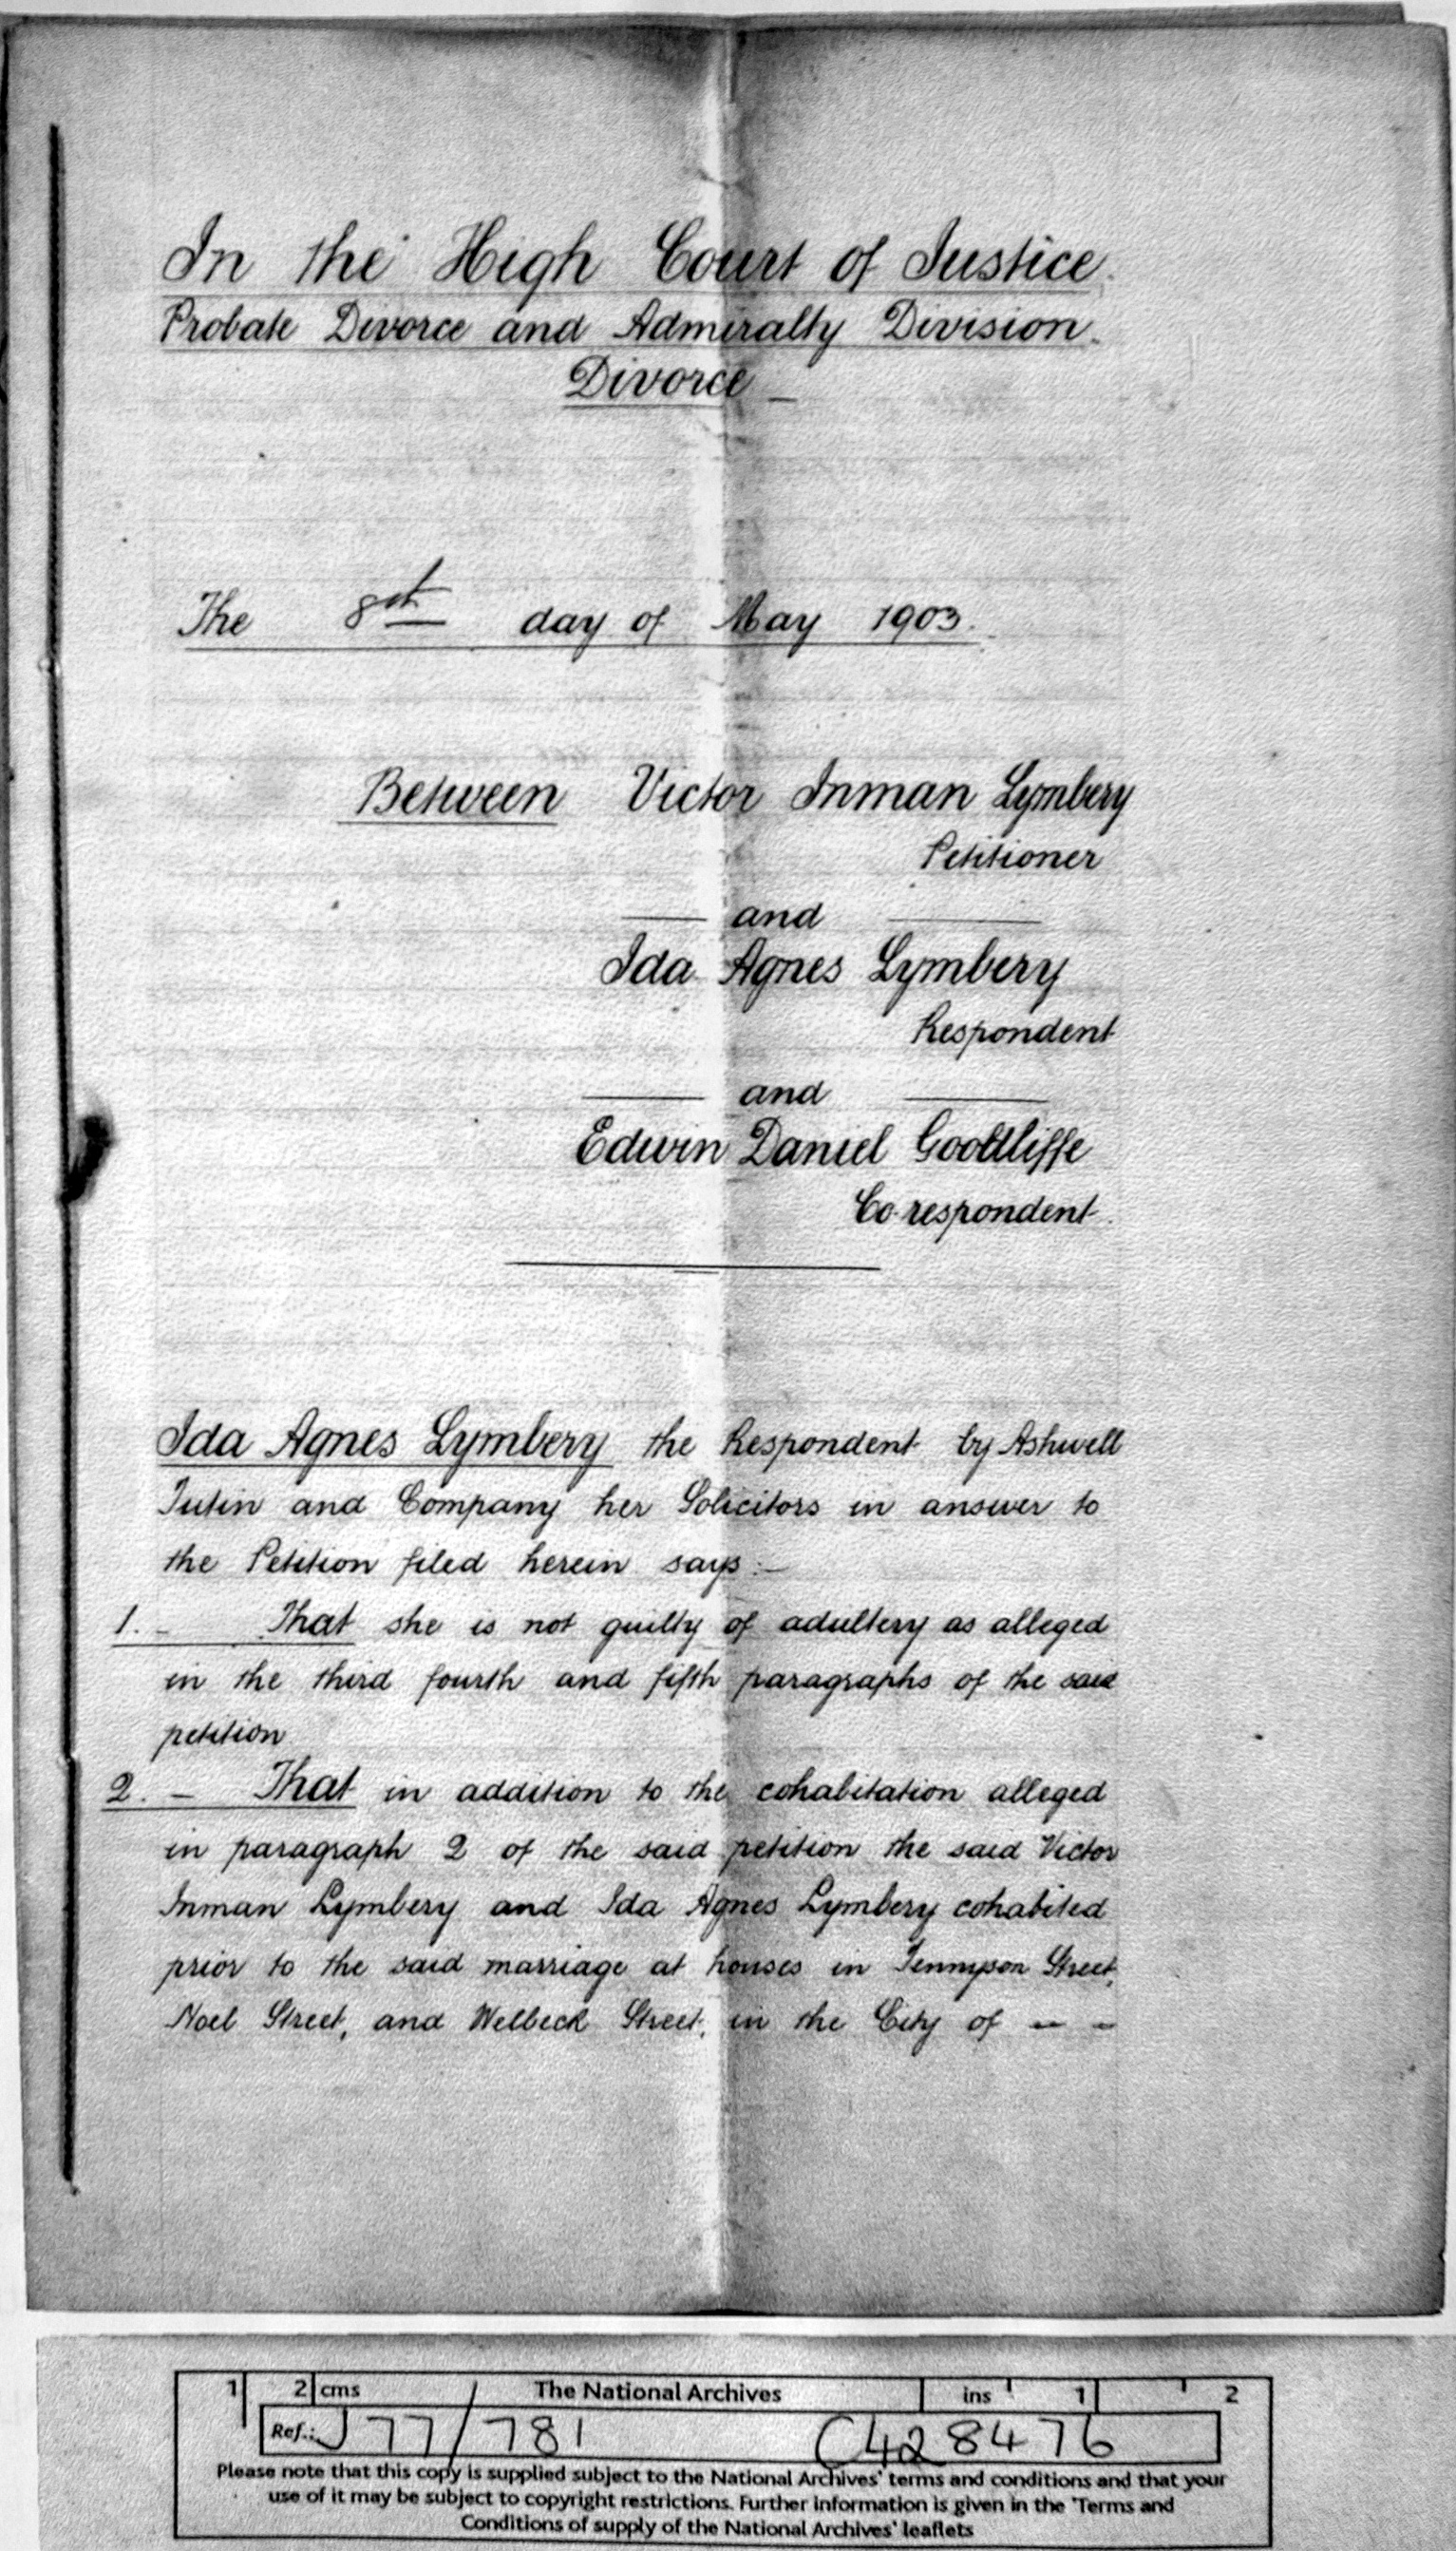 In the High Court of Justice.
Probate Divorce and Admiralty Division.
Divorce
The 8th day of May 1903.
Between Victor Inman Lymbery
Petitioner
and
Ida Agnes Lymbery
Respondent
and
Edwin Daniel Goodliffe
Co-respondent.
Ida Agnes Lymbery the Respondent by Ashwell
Tutin and Company her Solicitors in answer to
the Petition filed herein says:—
1. – That she is not guilty of adultery as alleged
in the third fourth and fifth paragraphs of the said
petition
2. – That in addition to the cohabitation alleged
in paragraph 2 of the said petition the said Victor
Inman Lymbery and Ida Agnes Lymbery cohabited
prior to the said marriage at houses in Tennyson Street,
Noel Street, and Welbeck Street, in the City of – –
1 2 cms The National Archives ins 1 2
Ref.: J 77/781 C428476
Please note that this copy is supplied subject to the National Archives' terms and conditions and that your
use of it may be subject to copyright restrictions. Further information is given in the 'Terms and
Conditions of supply of the National Archives' leaflets